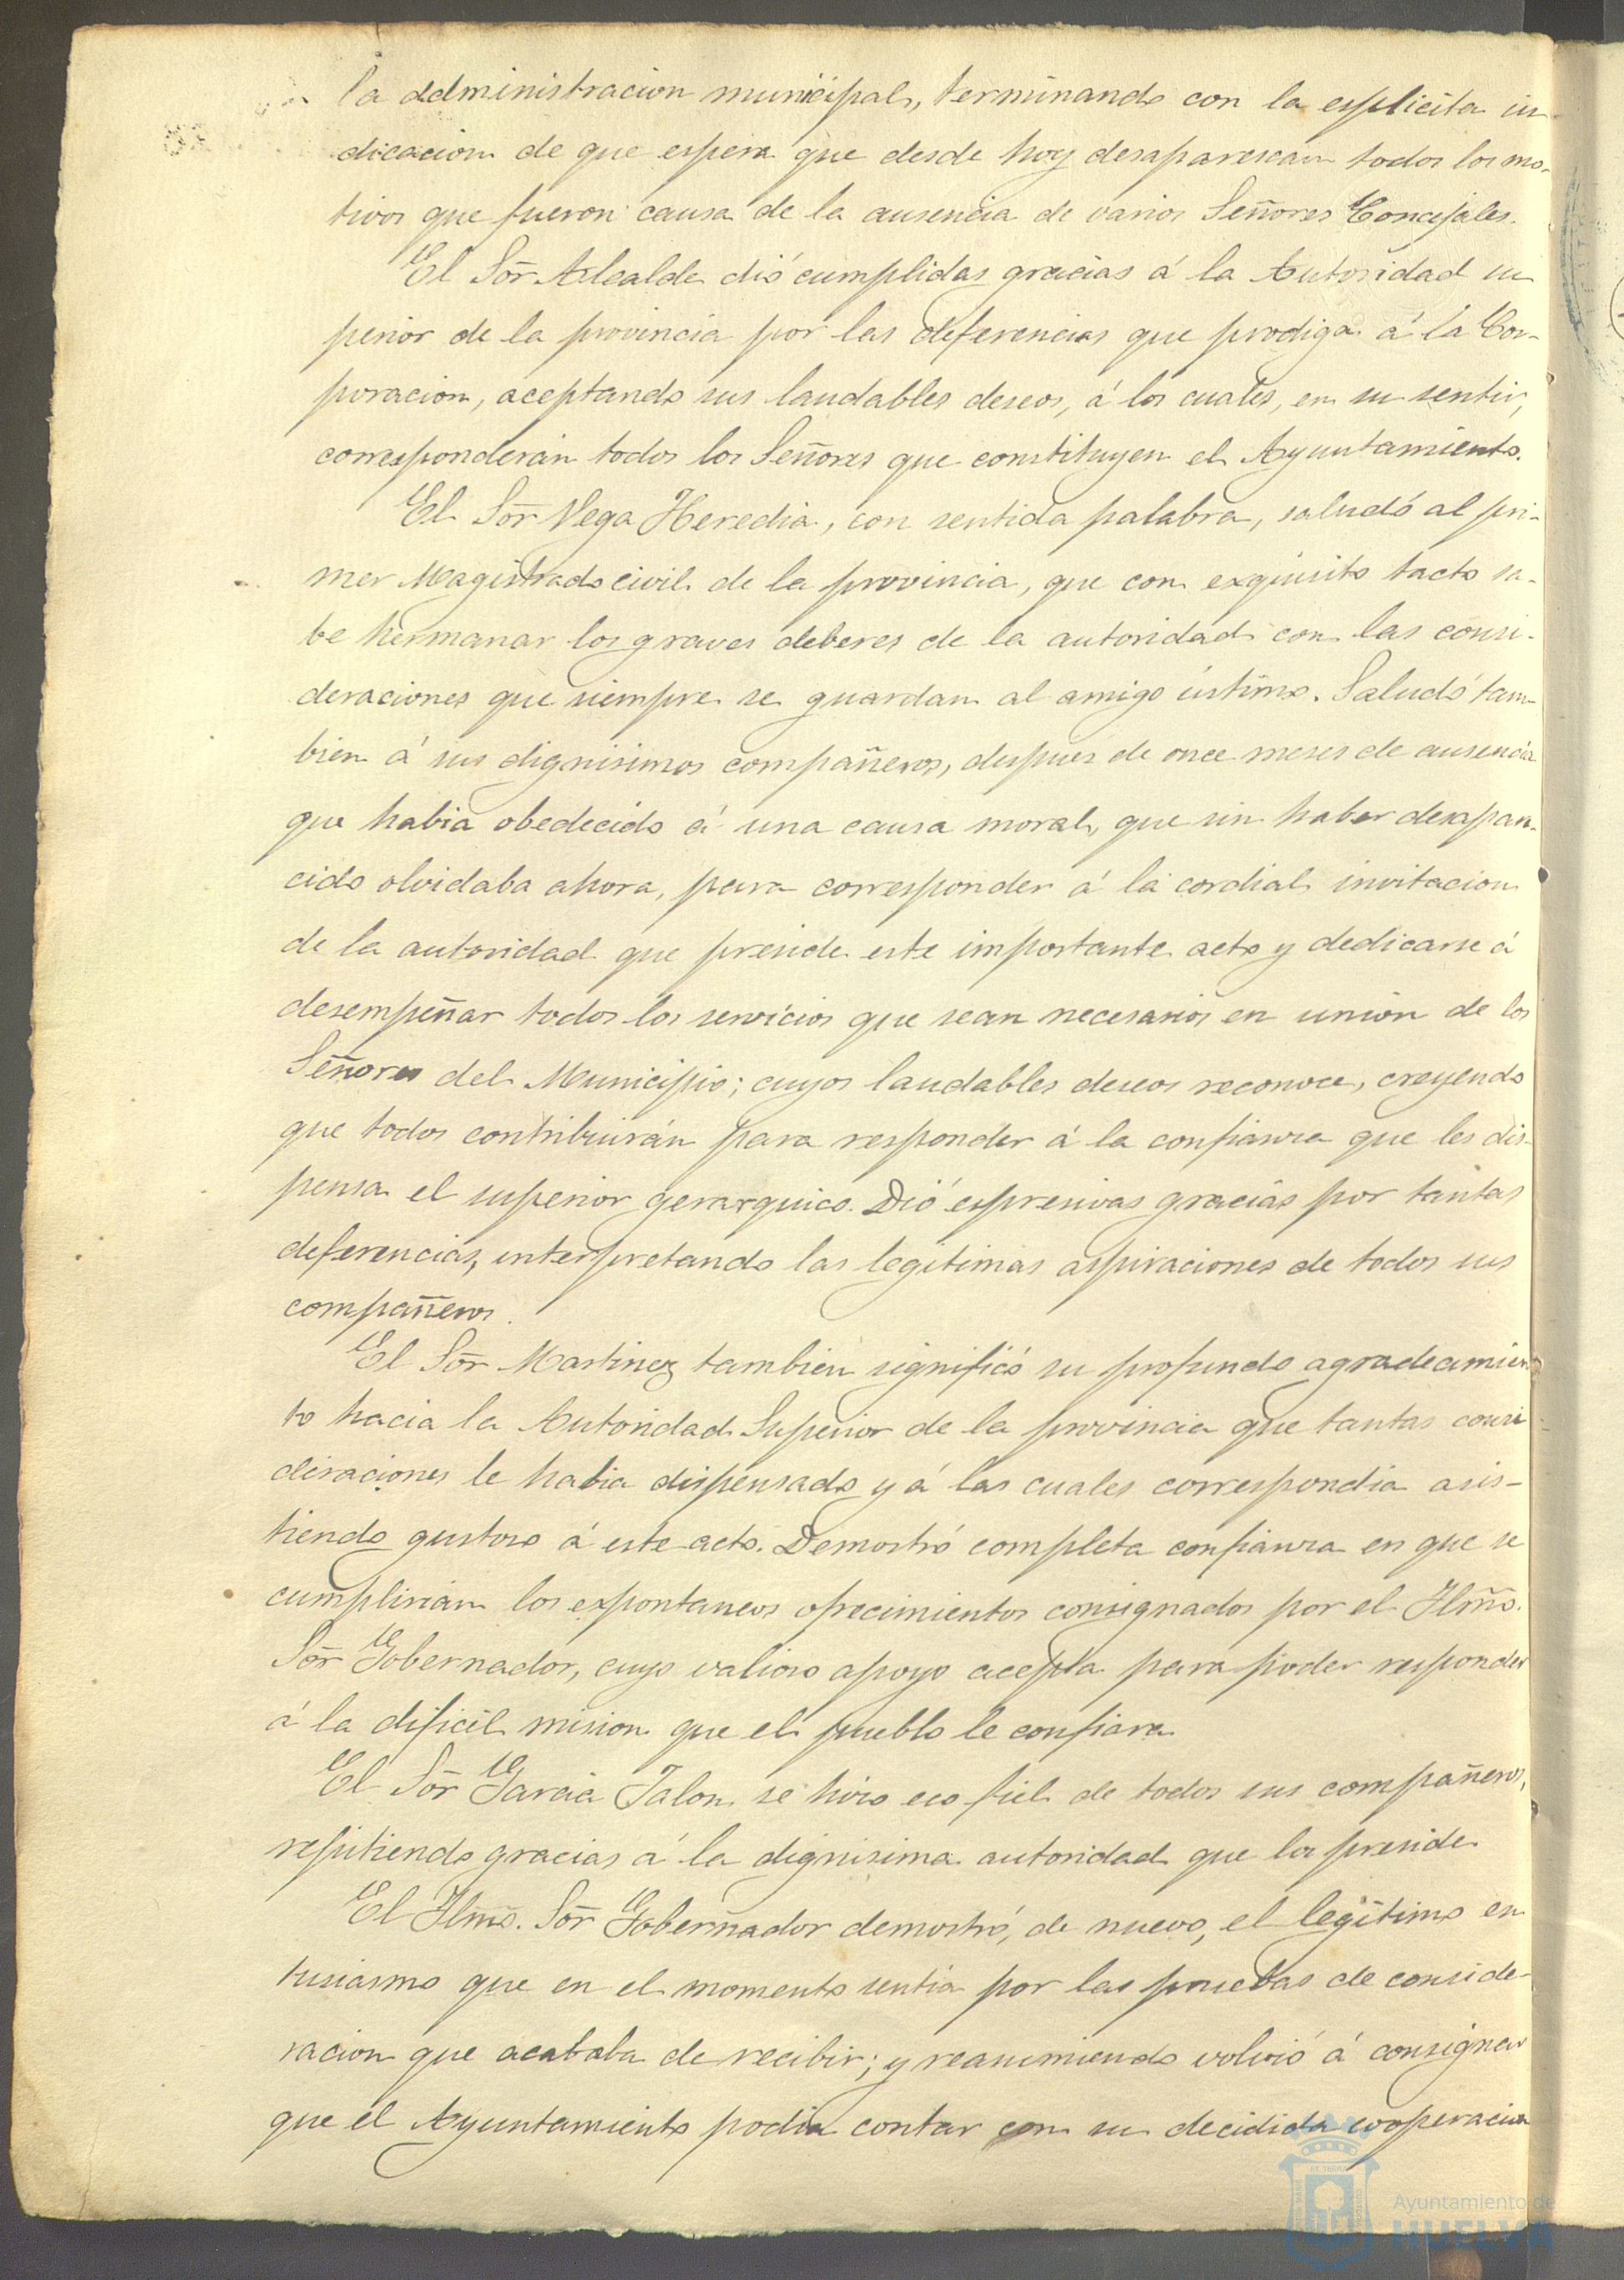 la administracion municipal, terminando con la esplicita in
dicacion de que espera que desde hoy desaparescan todos los mo-
tivos que fueron causa de la ausencia de varios Señores Concejales.
El Sõr Alcalde dió cumplidas gracias á la Autoridad su
perior de la provincia por las deferencias que prodiga á la Cor-
poracion, aceptando sus laudables deseos, á los cuales, en su sentir,
corresponderán todos los Señores que constituyen el Ayuntamiento.
El Sõr Vega Heredia, con sentida palabra, saludó al pri-
mer Magistrado civil de la provincia, que con exquisito tacto sa-
be hermanar los graves deberes de la autoridad con las consi-
deraciones que siempre se guardan al amigo íntimo. Saludó tam-
bien á sus dignisimos compañeros, despues de once meses de ausencia
que habia obedecido á una causa moral, que sin haber desapare-
cido olvidaba ahora, para corresponder á la cordial invitacion
de la autoridad que preside este importante acto y dedicarse á
desempeñar todos los servicios que sean necesarios en union de los
Señores del Municipio; cuyos laudables deseos reconoce, creyendo
que todos contribuirán para responder á la confianza que les dis-
pensa el superior gerarquico. Dió espresivas gracias por tantas
deferencias, interpretando las legitimas aspiraciones de todos sus
compañeros.
El Sõr Martinez tambien significó su profundo agradecimien
to hacia la Autoridad Superior de la provincia que tantas consi
deraciones le habia dispensado y á las cuales correspondia asis-
tiendo gustoso á este acto. Demostró completa confianza en que se
cumplirian los espontaneos ofrecimientos consignados por el Ilmõ.
Sõr Gobernador, cuyo valioso apoyo acepta para poder responder
á la dificil mision que el pueblo le confiara
El Sõr Garcia Jalon se hizo eco fiel de todos sus compañeros,
repitiendo gracias á la dignisima autoridad que los preside
El Ilmõ. Sõr Gobernador demostró, de nuevo, el legitimo en
tusiasmo que en el momento sentia por las pruebas de conside-
racion que acababa de recibir; y reasumiendo volvió á consignar
que el Ayuntamiento podia contar con su decidida cooperacion
Ayuntamiento de
HUELVA